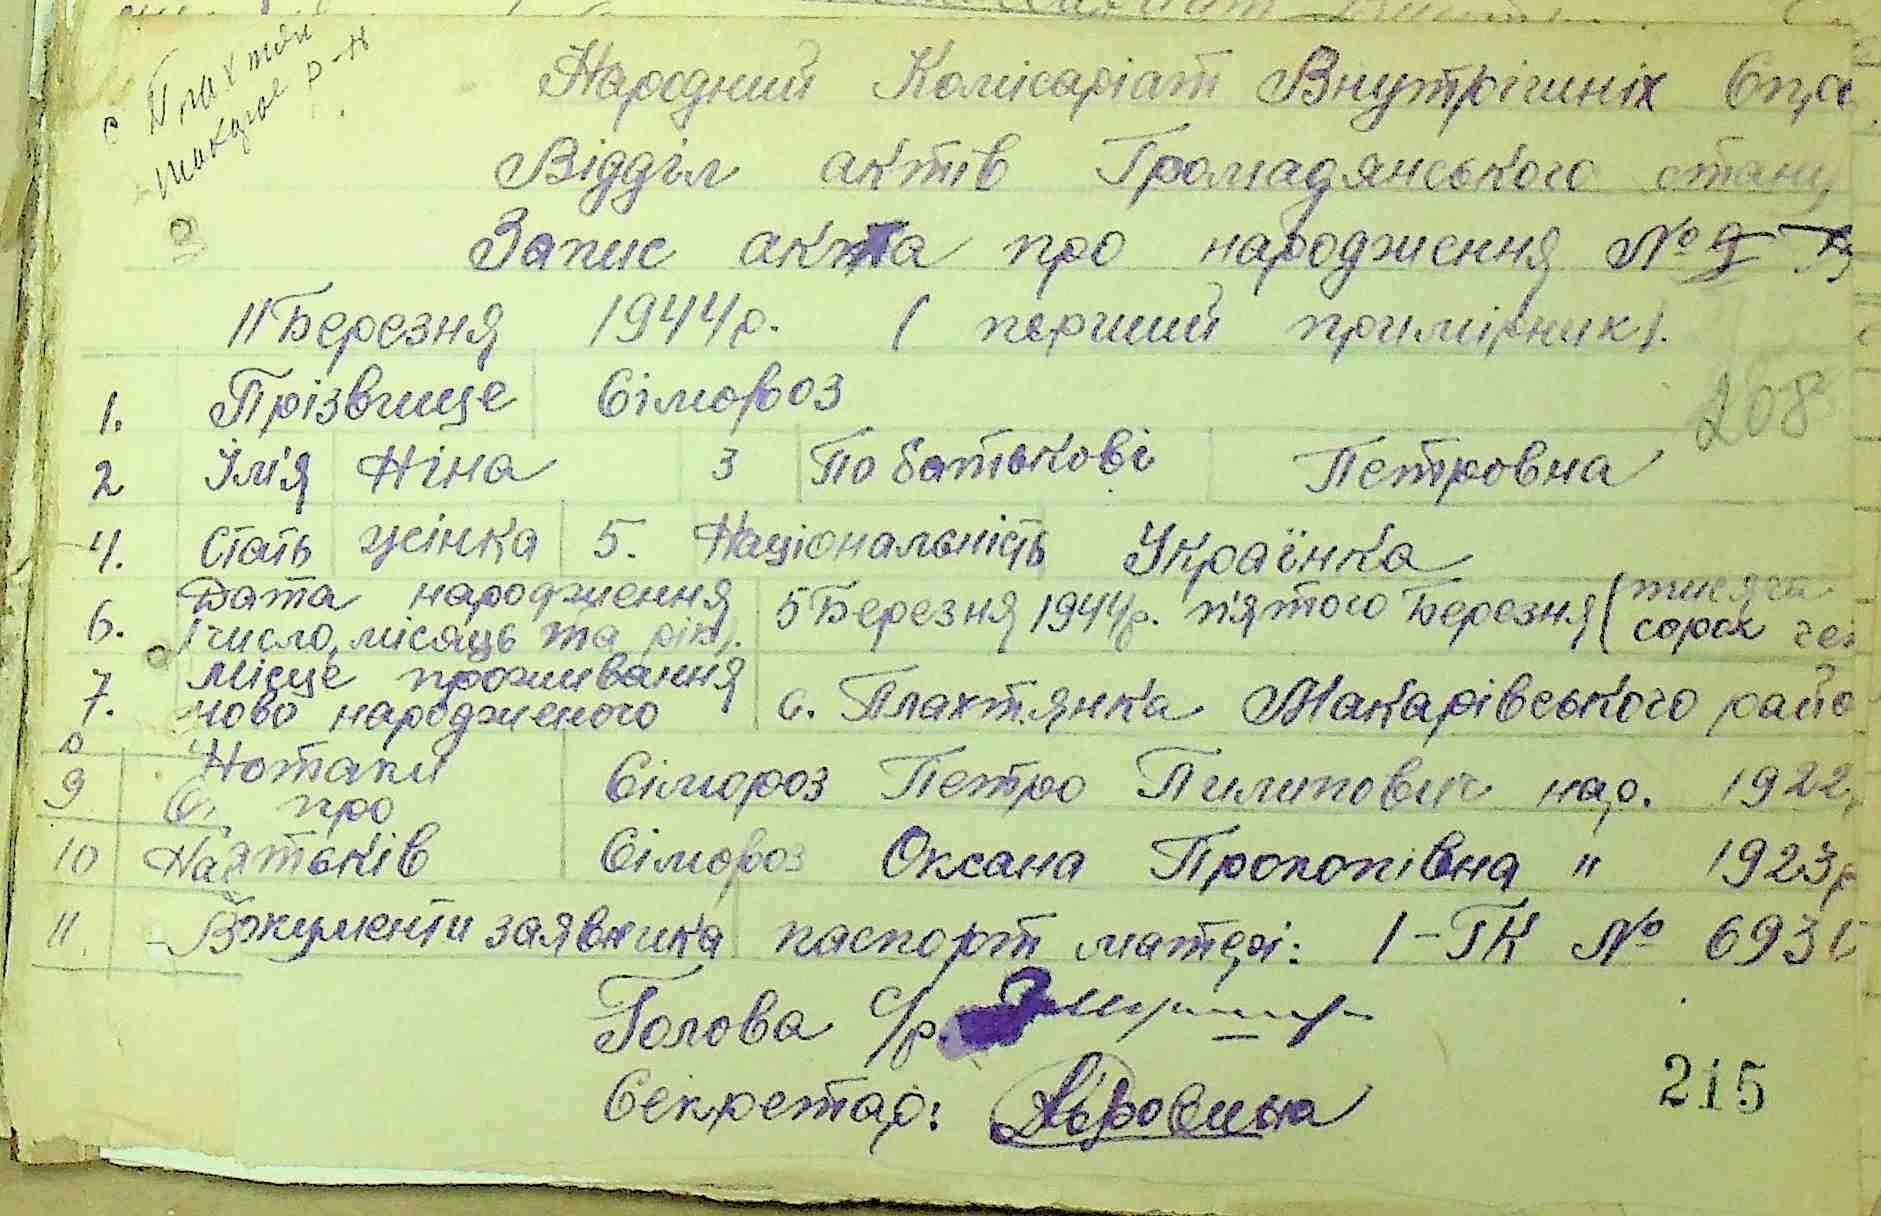 с Плахтян
Макар р-н
Народний Комісаріат Внутрішніх Спра
Відділ актів Громадянського стану
Запис акта про народження №
11 Березня 1944 р. ( перший примірник).
208
1. Прізвище Сімороз
2 Їм'я Ніна 3 По батькові Петровна
4. Стать жінка 5. Національність Українка
6. Дата народження (число, місяць та рік). 5 Березня 1944 р. п'ятого Березня ( тисяча сорок чет
7. Місце проживання ново народженого с. Плахтянка Макарівського райо
8 Нотатки
9 про Сімороз Петро Пилипович нар. 1922
10 батьків Сімороз Оксана Прокопівна " 1923 р
11. Документи заявника паспорт матері: 1-ГК № 693
Голова с/р.
Секретар:
215